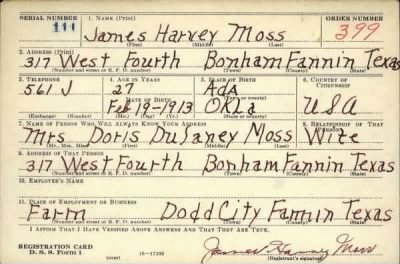 SERIAL NUMBER 1. NAME (Print) ORDER NUMBER
111 James Harvey Moss 399
(First) (Middle) (Last)
2. ADDRESS (Print)
317 West Fourth Bonham Fannin Texas
(Number and street or R. F. D. number) (Town) (County) (State)
3. TELEPHONE 4. AGE IN YEARS 5. PLACE OF BIRTH 6. COUNTRY OF CITIZENSHIP
561 J 27 Ada
DATE OF BIRTH
Feb 19-1913 Okla USA
(Exchange) (Number) (Mo.) (Day) (Yr.) (State or country)
7. NAME OF PERSON WHO WILL ALWAYS KNOW YOUR ADDRESS 8. RELATIONSHIP OF THAT PERSON
Mrs Doris Dulaney Moss Wife
(Mr., Mrs., Miss) (First) (Middle) (Last)
9. ADDRESS OF THAT PERSON
317 West Fourth Bonham Fannin Texas
(Number and street or R. F. D. number) (Town) (County) (State)
10. EMPLOYER'S NAME
11. PLACE OF EMPLOYMENT OR BUSINESS
Farm Dodd City Fannin Texas
(Number and street or R. F. D. number) (Town) (County) (State)
I AFFIRM THAT I HAVE VERIFIED ABOVE ANSWERS AND THAT THEY ARE TRUE.
REGISTRATION CARD
D. S. S. Form 1 16-17105 James Harvey Moss
(Registrant's signature)